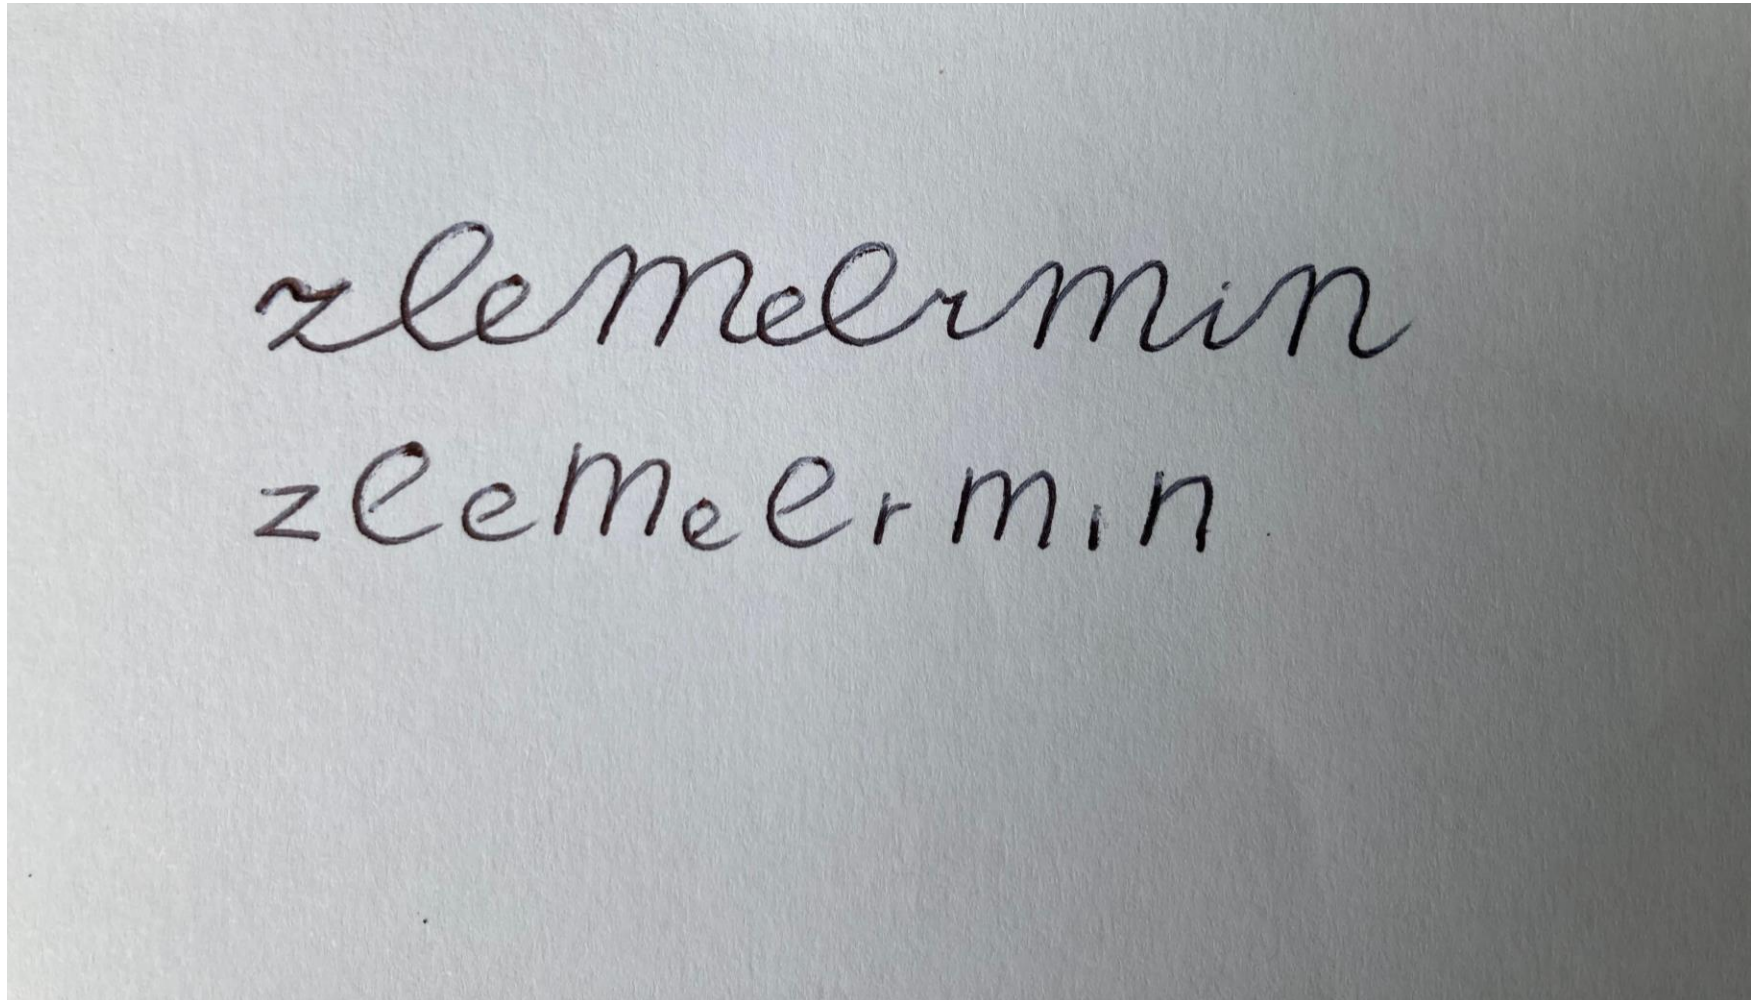 zeemeermin
zeemeermin